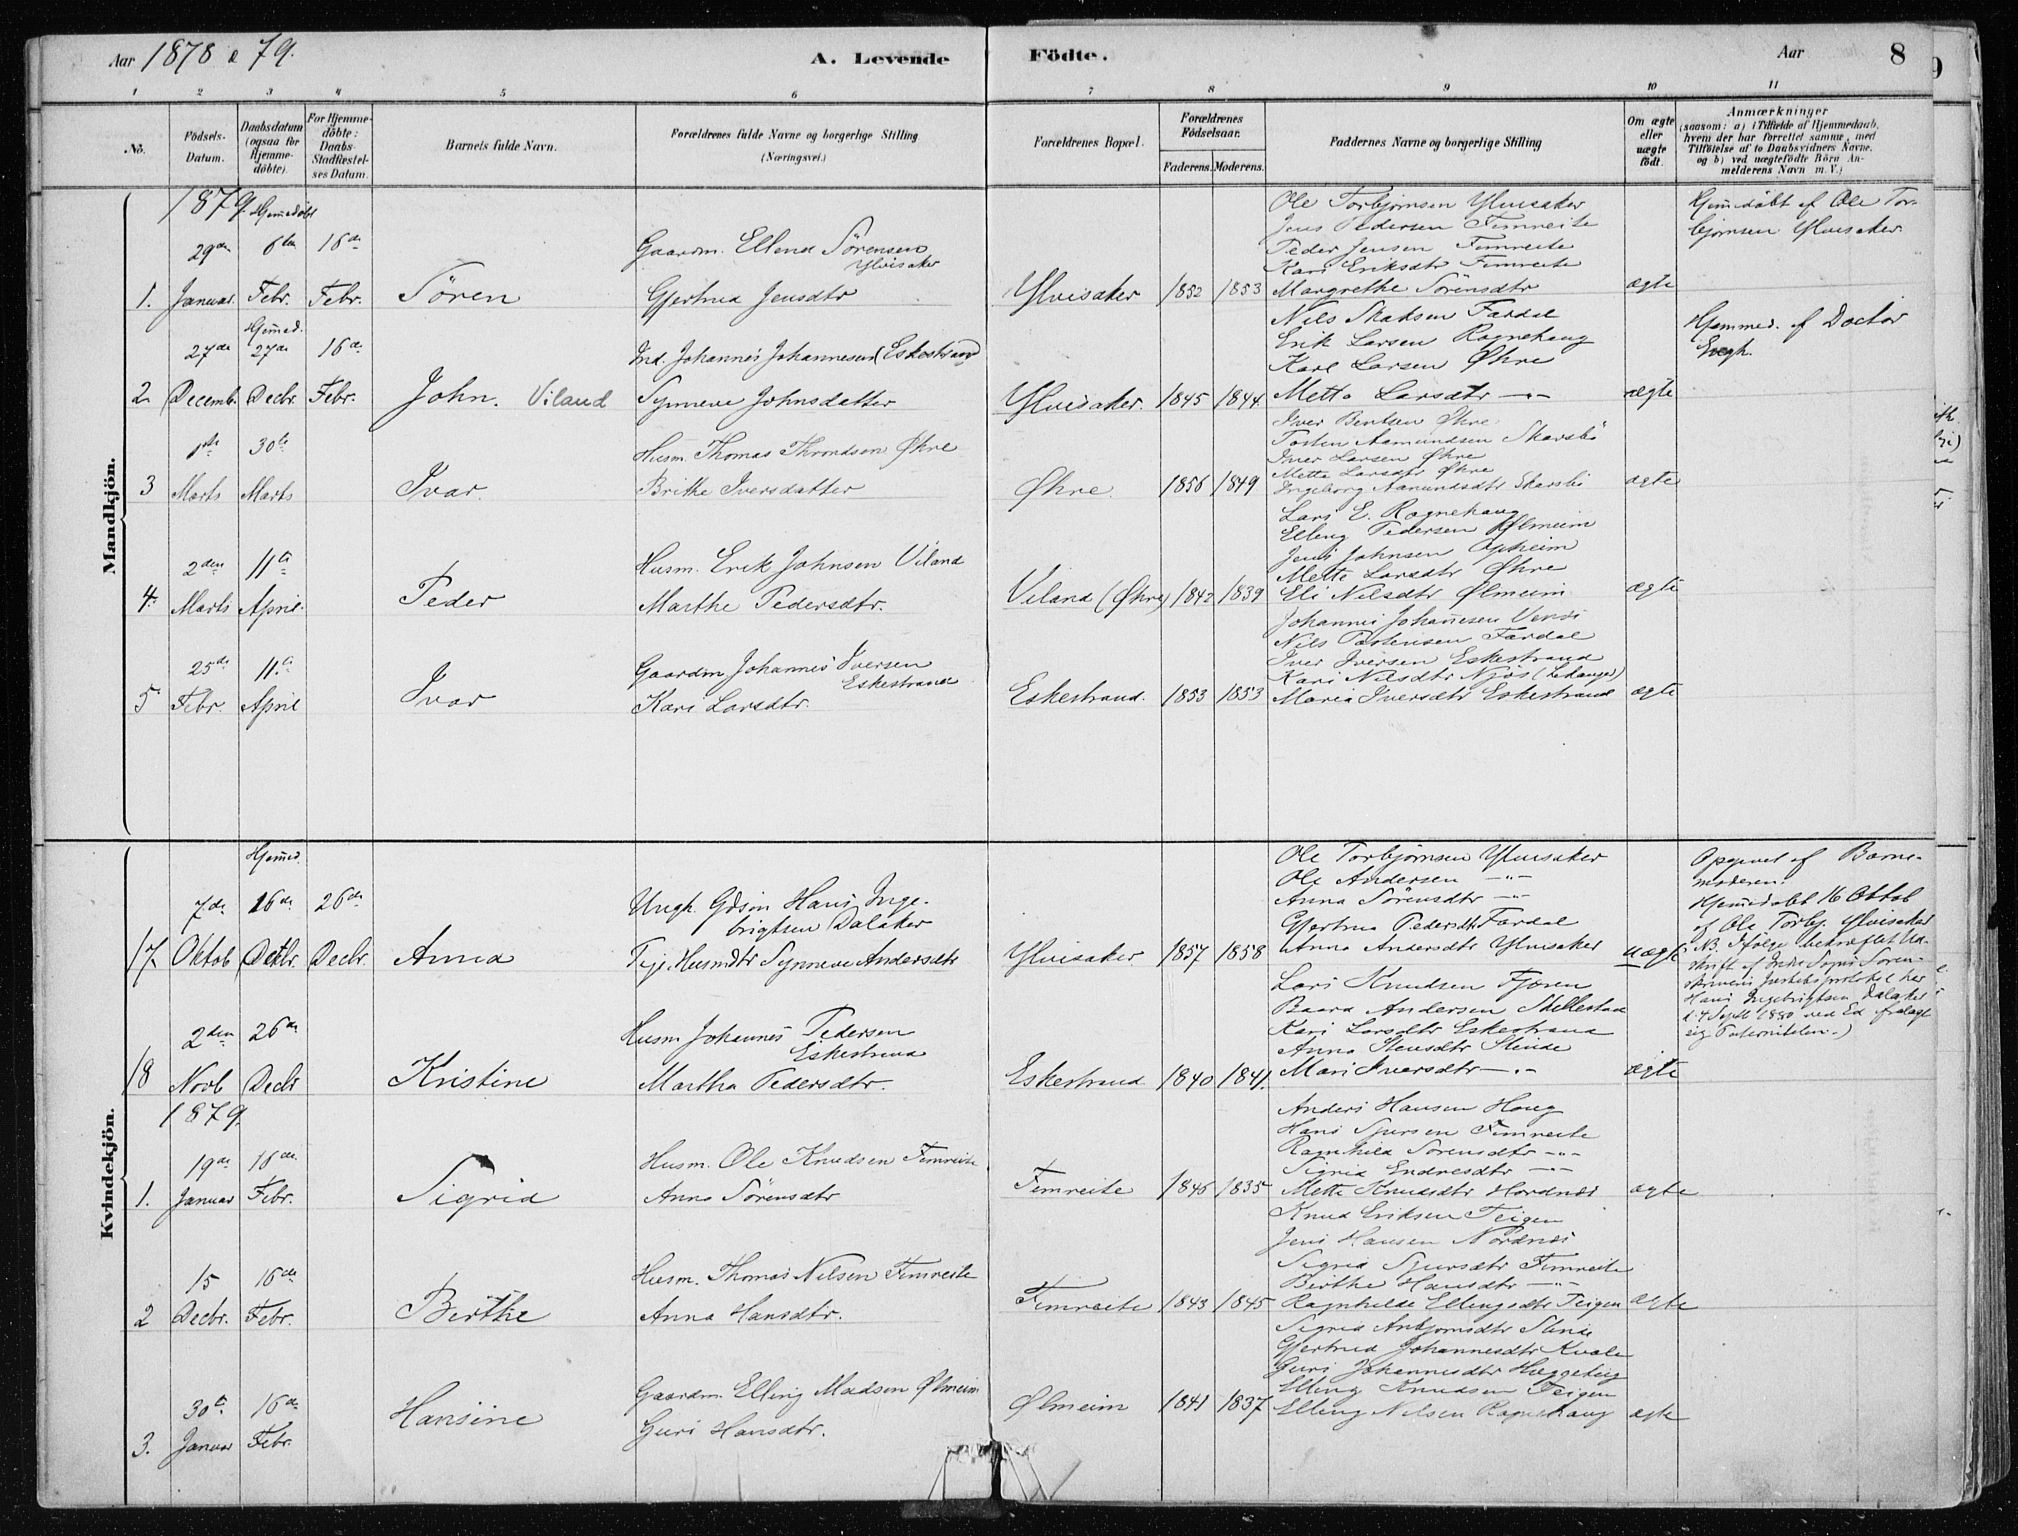 Aar 1878 & 79.
A. Levende Födte.
Aar
8
1 2 3 4 5 6 7 8 9 10 11
No.
Födsels-Datum.
Daabsdatum (ogsaa for Hjemmedöbte).
For Hjemmedöbte: Daabs-Stadfæstelses Datum.
Barnets fulde Navn.
Forældrenes fulde Navne og borgerlige Stilling (Næringsvei.)
Forældrenes Bopæl.
Forældrenes Födselsaar.
Faderens. Moderens.
Faddernes Navne og borgerlige Stilling
Om ægte eller uægte födt.
Anmærkninger
(saasom: a) i Tilfælde af Hjemmedaab,
hvem der har forrettet samme, med
Tilföielse af to Daabsvidners Navne,
og b) ved uægtefödte Börn Anmelderens Navn m. V.)
Mandkjön.
1879. Hjemmedöbt
29de 6te 16de
1. Januar. Febr. Febr.
Sören
Gaardm. Ellend Sörensen
Ylvisaker
Gjertrud Jensdtr
Ylvisaker 1852 1853
Ole Torbjørnsen Ylvisaker
Jens Pedersen Fimreite
Peder Jensen Fimreite
Kari Eriksdtr Fimreite
Margrethe Sörensdtr
ægte
Hjemdöbt af Ole Tor-
bjørnsen Ylvisaker.
Hjemmed.
27de 27de 16de
2. Decemb. Decbr. Febr.
John. Viland
Ind. Johannes Johannesen (Eskestrand)
Synneve Johnsdatter
Ylvisaker. 1845 1844
Nils Fardal
Erik Larsen Rognehaug
Karl Larsen Øhre
Mette Larsdtr -"-
ægte
Hjemmed. af Doctor
1ste 30te
3 Marts Marts
Ivar.
Husm. Thomas Throndsen Øhre
Brithe Iversdatter
Øhre. 1856 1849
Iver Bentsen Øhre
Tosten Aamundsen Skarsbö
Iver Larsen Øhre
Mette Larsdtr Øhre
Ingeborg Aamundsdtr Skarsbö
ægte
2den 11te
4. Marts April.
Peder
Husm. Erik Johnsen Viland
Marthe Pedersdtr.
Viland (Øhre) 1842 1839
Lars E. Rognehaug
Elling Pedersen Ølmeim
Jens Johnsen Opheim
Mette Larsdtr Øhre
Eli Nilsdtr Ølmeim
ægte
25de 11te
5 Febr. April
Ivar
Gaardm Johannes Iversen
Eskestrand
Kari Larsdtr.
Eskestrand. 1853 1853
Johannes Johannesen
Nils Fardal
Iver Iversen Eskestrand
Kari Nilsdtr Njøs (Lekanger)
Maria Iversdtr Eskestrand
ægte
Kvindekjön.
Hjemmed.
7de 16de 26de
17. Oktob Decbr. Decbr.
Anna
Ungk. Gdsøn Hans Inge-
brigtsen Dalaker
Husmdtr Synneve Andersdtr
Ylvisaker 1857 1858
Ole Torbjørnsen Ylvisaker
Ole Andersen -"-
Anna Sörensdtr -"-
Gjertrud Pedersdtr Fardal
Anna Andersdtr Ylvisaker
uægte
Opgivet af Barne-
moderen.
Hjemmedöbt 16 Oktob
af Ole Torbj. Ylvisaker
NB. Ifølge bekræftet Ud-
skrift af Indre Sogns Soren-
skriveris Justitsprotokol har
Hans Ingebrigtsen Dalaker
d. 4 Septb 1880 ved Ed fralagt
sig Paterniteten.)
2den 26de
18 Novb Decbr
Kristine
Husm Johannes Pedersen
Eskestrand
Martha Pedersdtr.
Eskestrand 1840 1841.
Lars Knudsen Fjæren
Baard Andersen Stedjestad
Kari Larsdtr Eskestrand
Anna Stensdtr Slinde
Mari Iversdtr -"-
ægte
1879.
19de 16de
1. Januar Febr.
Sigrid
Husm. Ole Knudsen Fimreite
Anna Sörensdtr
Fimreite 1846 1835
Anders Hansen Haug
Hans Sjursen Fimreite
Ragnhild Sörensdtr -"-
Sigrid Endresdtr -"-
Mette Knudsdtr Nordnæs
ægte
15 16de
2 Decbr. Febr.
Birthe
Husm. Thomas Nilsen Fimreite
Anna Hansdtr.
Fimreite 1843 1845
Knud Eriksen Teigen
Jens Hansen Nordnæs
Sigrid Sjursdtr Fimreite
Birthe Hansdtr -"-
Ragnhilde Ellingsdtr Teigen
ægte
30te 16de
3. Januar Febr.
Hansine
Gaardm. Elling Madsen Ølmeim
Guri Hansdtr.
Ølmeim 1841 1837
Sigrid Anbjørnsdtr Slinde
Gjertrud Johannesdtr Kvale
Guri Johannesdtr Hæggestig
Elling Knudsen Teigen
Elling Nilsen Rognehaug
ægte